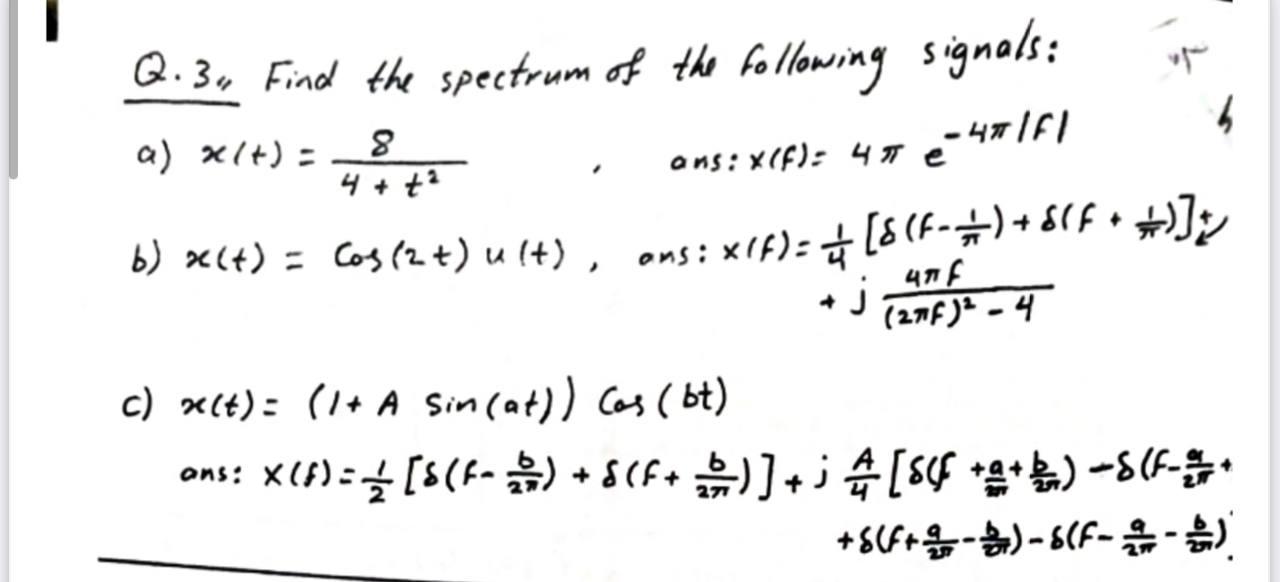 Q.3,, Find the spectrum of the following signals:
a) x(t) = 8 / (4 + t²) , ans: X(f) = 4π e^(-4π|f|)
b) x(t) = Cos(2t) u(t) , ans: X(f) = 1/4 [δ(f - 1/π) + δ(f + 1/π)] +
+ j 4πf / ((2πf)² - 4)
c) x(t) = (1 + A Sin(at)) Cos(bt)
ans: X(f) = 1/2 [δ(f - b/2π) + δ(f + b/2π)] + j A/4 [δ(f + a/2π + b/2π) - δ(f - a/2π +
+ δ(f + a/2π - b/2π) - δ(f - a/2π - b/2π)